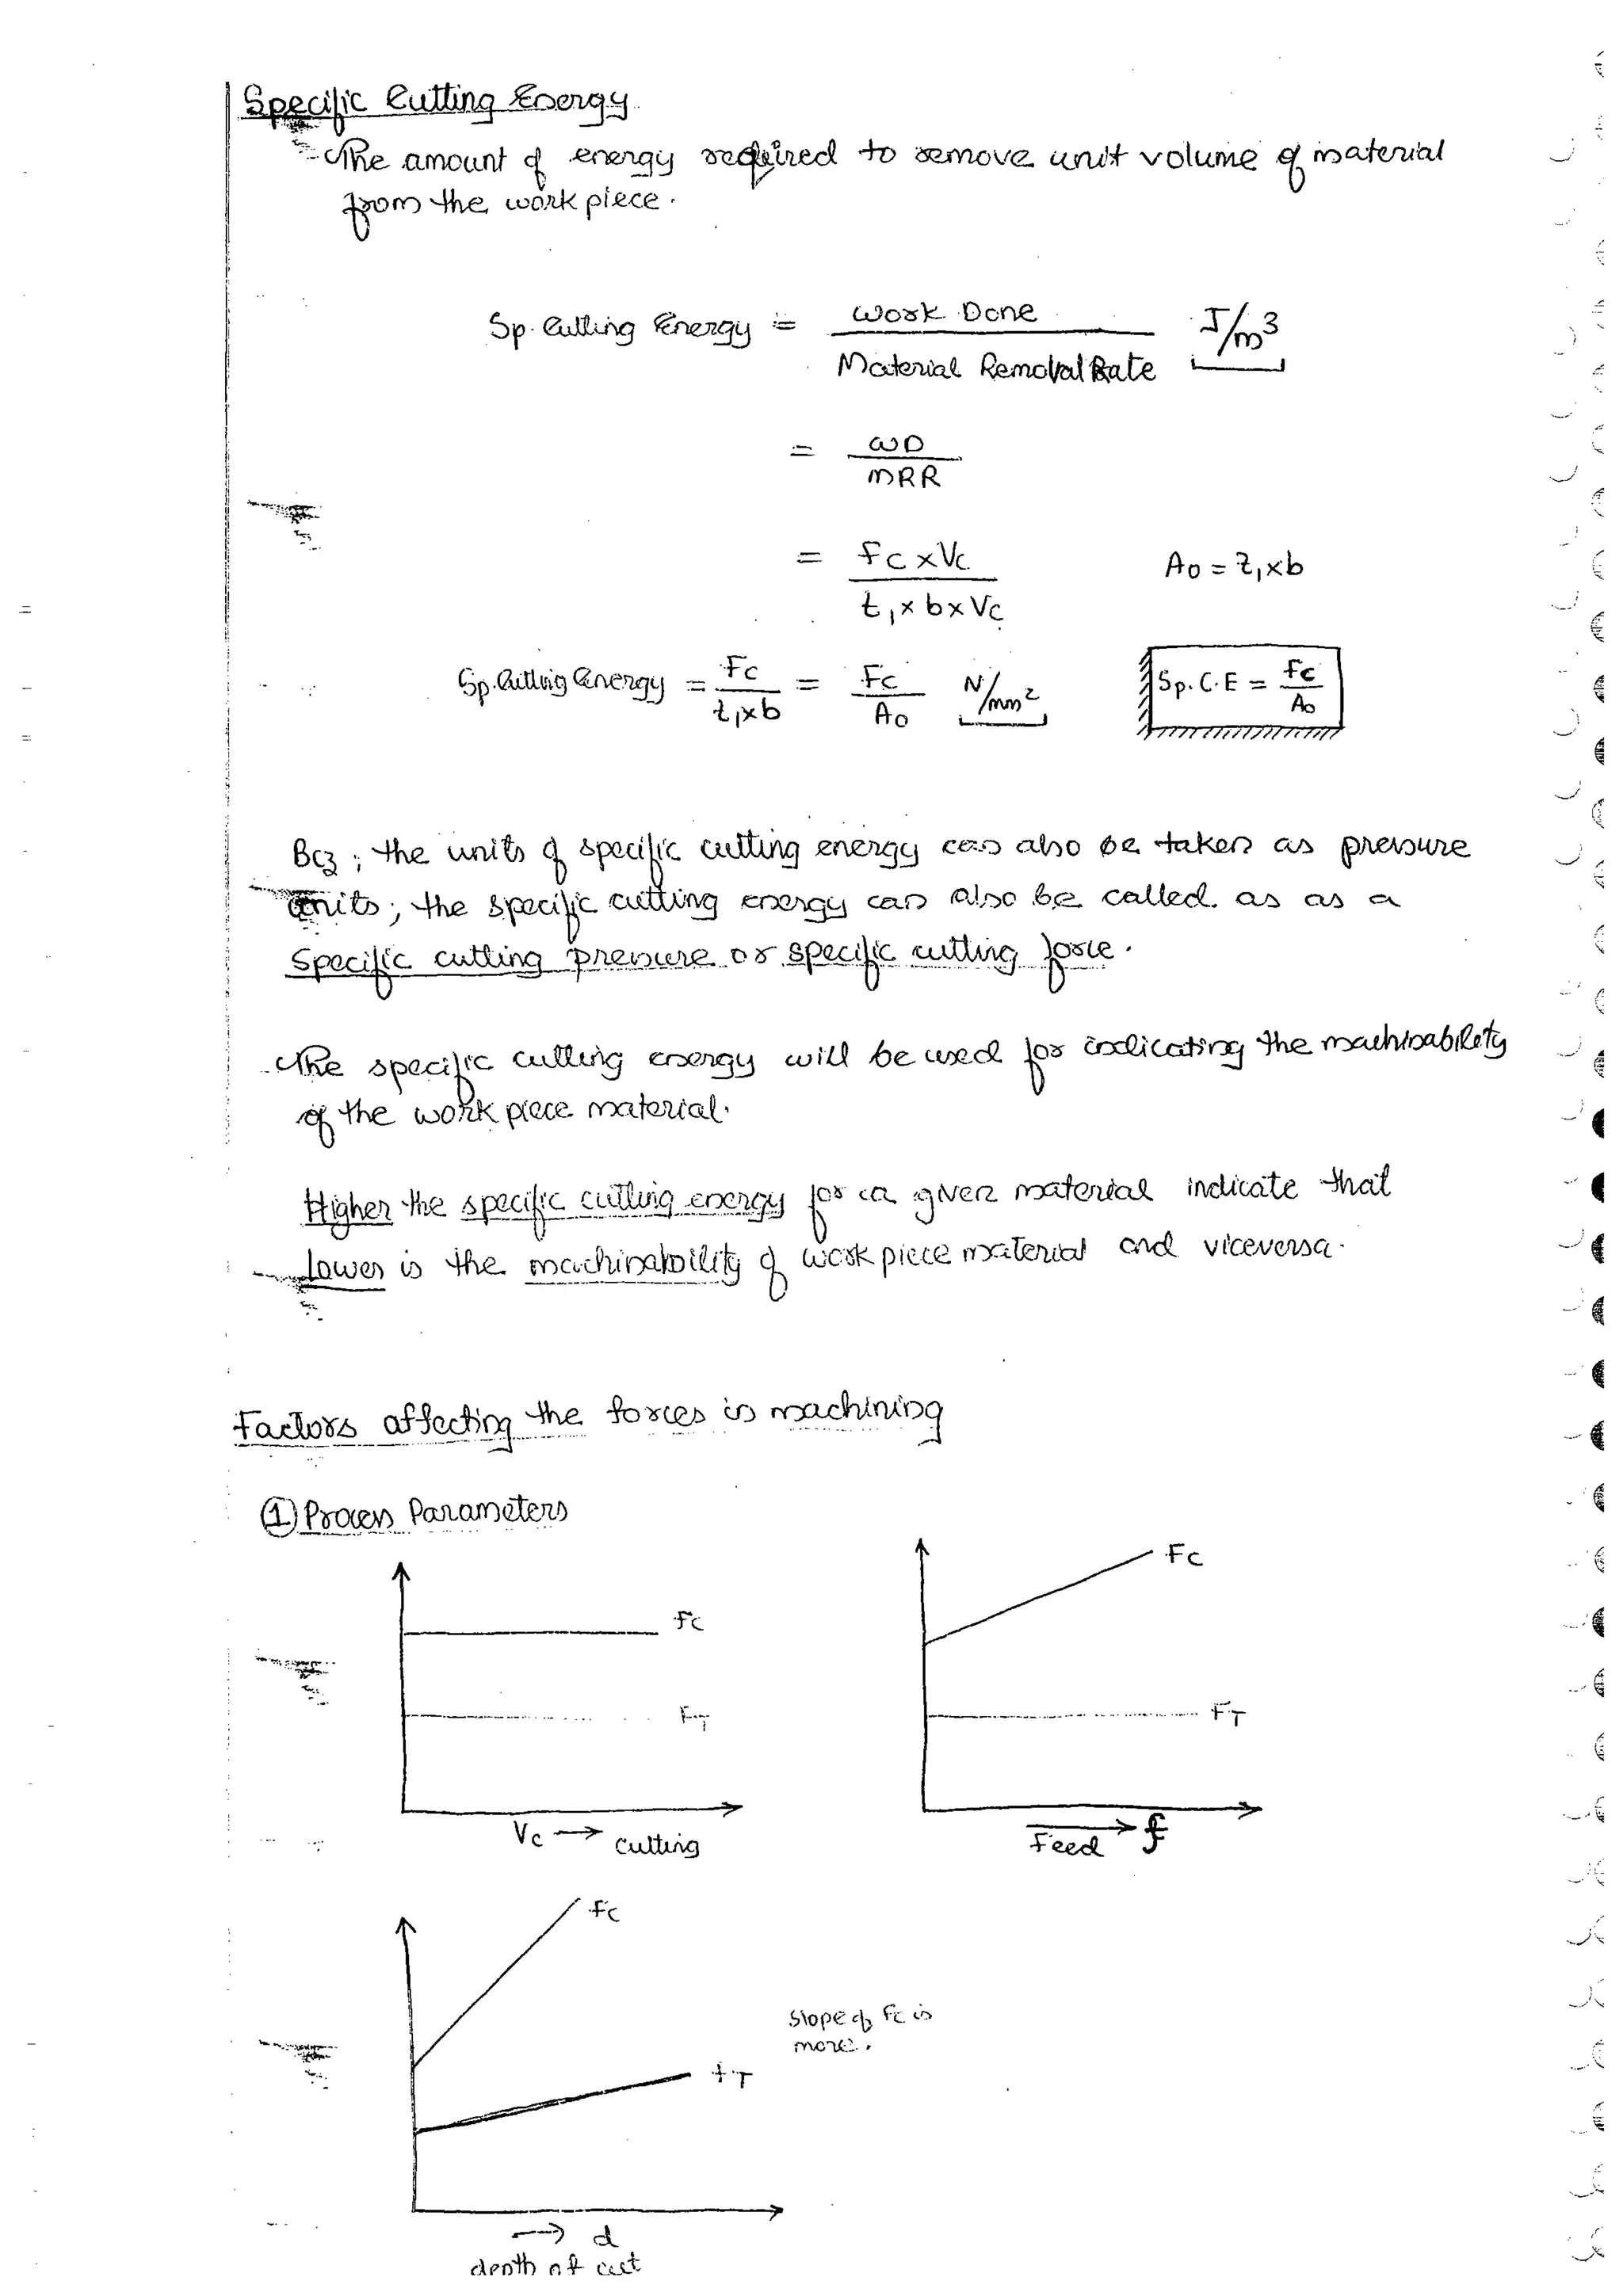 Specific Cutting Energy
- The amount of energy required to remove unit volume of material
from the work piece.
Sp. Cutting Energy = Work Done / Material Removal Rate J/m³
= WD / MRR
= Fc x Vc / t₁ x b x Vc
A₀ = t₁ x b
Sp. Cutting Energy = Fc / t₁ x b = Fc / A₀ N/mm²
Sp. C.E = Fc / A₀
Bcz ; the units of specific cutting energy can also be taken as pressure
units ; the specific cutting energy can also be called as as a
specific cutting pressure or specific cutting force.
The specific cutting energy will be used for indicating the machinability
of the work piece material.
Higher the specific cutting energy for a given material indicate that
lower is the machinability of work piece material and viceversa.
Factors affecting the forces in machining
① Process Parameters
Fc
FT
Vc → cutting
Fc
FT
Feed → f
Fc
FT
Slope of Fc is
more.
→ d
depth of cut